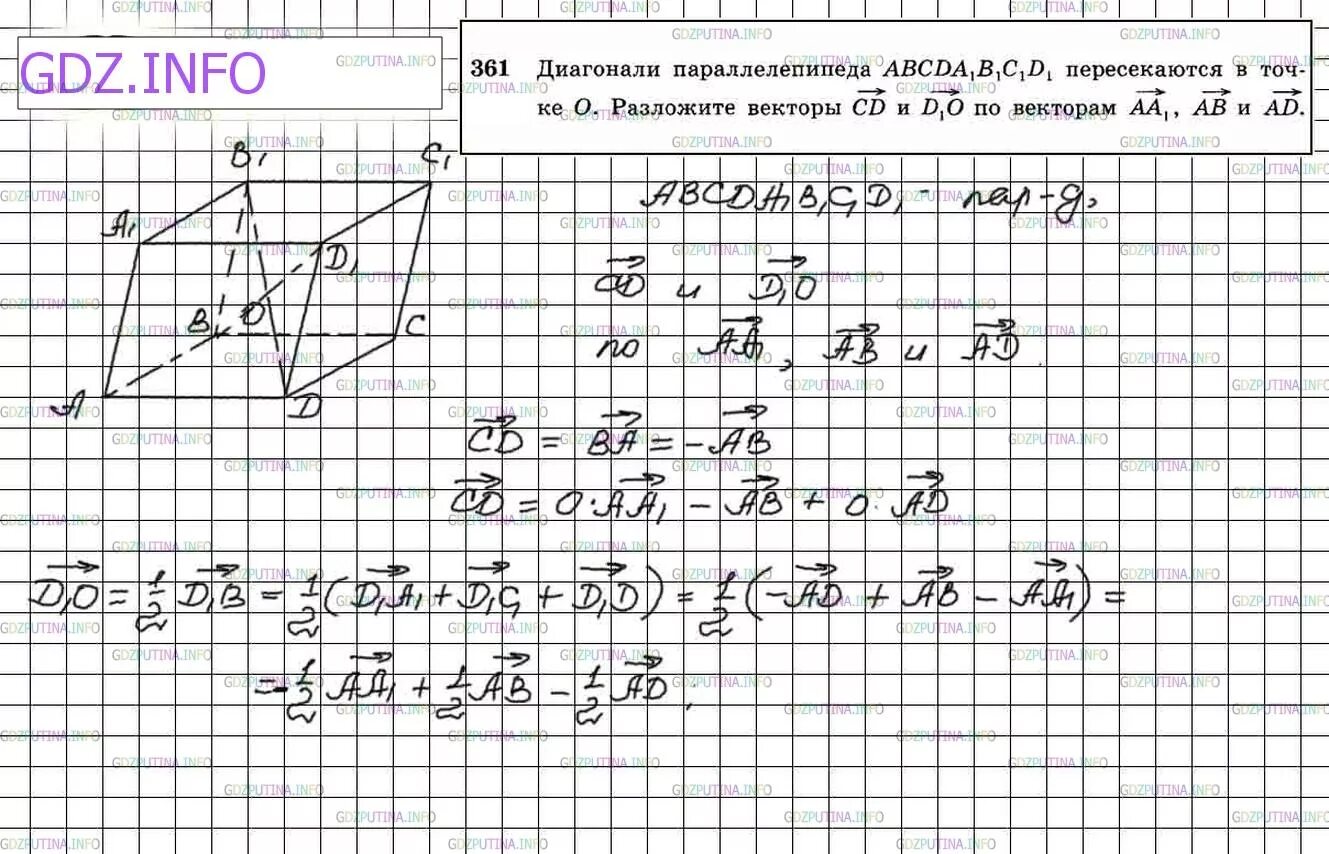 GDZ.INFO
361 Диагонали параллелепипеда ABCDA₁B₁C₁D₁ пересекаются в точ-
ке O. Разложите векторы CD⃗ и D₁O⃗ по векторам AA₁⃗, AB⃗ и AD⃗.
B₁ C₁
A₁ D₁
B O C
A D
ABCDA₁B₁C₁D₁ - пар-д,
CD⃗ и D₁O⃗
по AA₁⃗, AB⃗ и AD⃗.
CD⃗ = BA⃗ = -AB⃗
CD⃗ = 0·AA₁⃗ - AB⃗ + 0·AD⃗
D₁O⃗ = 1/2 D₁B⃗ = 1/2 (D₁A₁⃗ + D₁C₁⃗ + D₁D⃗) = 1/2 (-AD⃗ + AB⃗ - AA₁⃗) =
= -1/2 AA₁⃗ + 1/2 AB⃗ - 1/2 AD⃗;
GDZPUTINA.INFO